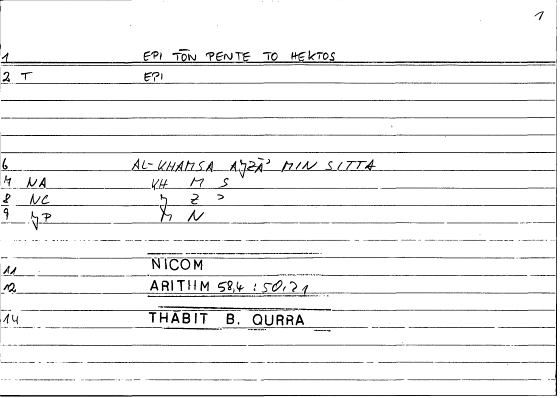 1
1 EPI TŌN PENTE TO HEKTOS
2 T EPI
6 AL-KHAMSA AJZĀʾ MIN SITTA
7 NA KH M S
8 NC J Z ʾ
9 JP M N
11 NICOM
12 ARITHM 58,4 : 50,21
14 THĀBIT B. QURRA